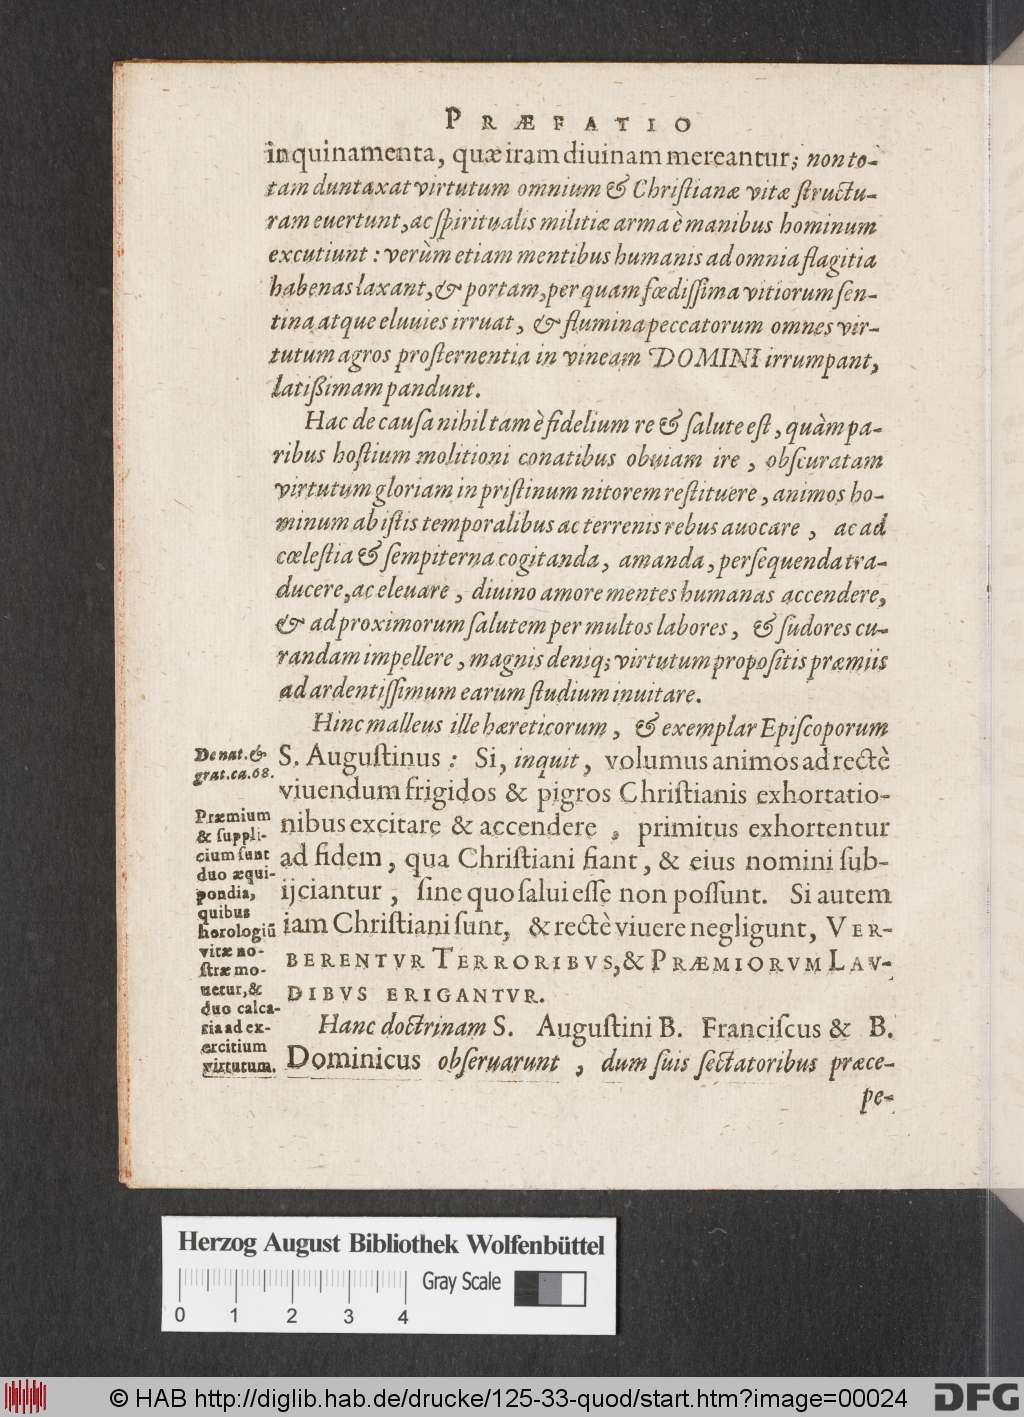 PRÆFATIO
inquinamenta, quæ iram diuinam mereantur; non to-
tam duntaxat virtutum omnium & Chriſtianæ vitæ ſtructu-
ram euertunt, ac ſpiritualis militiæ arma è manibus hominum
excutiunt : verùm etiam mentibus humanis ad omnia flagitia
habenas laxant, & portam, per quam fœdiſſima vitiorum ſen-
tina atque eluuies irruat, & flumina peccatorum omnes vir-
tutum agros proſternentia in vineam DOMINI irrumpant,
latißimam pandunt.
Hac de cauſa nihil tam è fidelium re & ſalute eſt, quàm pa-
ribus hoſtium molitioni conatibus obuiam ire, obſcuratam
virtutum gloriam in priſtinum nitorem reſtituere, animos ho-
minum ab iſtis temporalibus ac terrenis rebus auocare, ac ad
cœleſtia & ſempiterna cogitanda, amanda, perſequenda tra-
ducere, ac eleuare, diuino amore mentes humanas accendere,
& ad proximorum ſalutem per multos labores, & ſudores cu-
randam impellere, magnis deniq; virtutum propoſitis præmiis
ad ardentiſſimum earum ſtudium inuitare.
Hinc malleus ille hæreticorum, & exemplar Epiſcoporum
S. Auguſtinus : Si, inquit, volumus animos ad rectè
viuendum frigidos & pigros Chriſtianis exhortatio-
nibus excitare & accendere, primitus exhortentur
ad fidem, qua Chriſtiani fiant, & eius nomini ſub-
ijciantur, ſine quo ſalui eſſe non poſſunt. Si autem
iam Chriſtiani ſunt, & rectè viuere negligunt, VER-
BERENTVR TERRORIBVS, & PRÆMIORVM LAV-
DIBVS ERIGANTVR.
Hanc doctrinam S. Auguſtini B. Franciſcus & B.
Dominicus obſeruarunt, dum ſuis ſectatoribus præce-
pe-
De nat. &
grat. ca. 68.
Præmium
& ſuppli-
cium ſunt
duo æqui-
pondia,
quibus
horologiū
vitæ no-
ſtræ mo-
uetur, &
duo calca-
ria ad ex-
ercitium
virtutum.
Herzog August Bibliothek Wolfenbüttel
Gray Scale
0 1 2 3 4
© HAB http://diglib.hab.de/drucke/125-33-quod/start.htm?image=00024
DFG